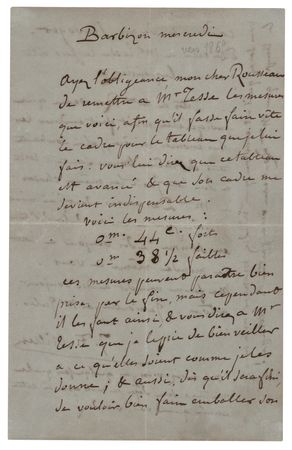 Barbizon mercredi
vers 186
Ayez l'obligeance mon cher Rousseau
de remettre a Mr Tesse les mesures
que voici, afin qu'il fasse faire vite
le cadre pour le tableau que je lui
fais. vous lui direz que ce tableau
est avancé & que son cadre me
devient indispensable.
voici les mesures :
0m. 44 c. forts
0m 38 1/2 faibles
ces mesures peuvent paraitre bien
prises par le fin, mais cependant
il les faut ainsi, & vous direz a Mr
Tesse que je le prie de bien veiller
a ce qu'elles soient comme je les
donne ; & aussi, dès qu'il sera fini,
de vouloir bien faire emballer son